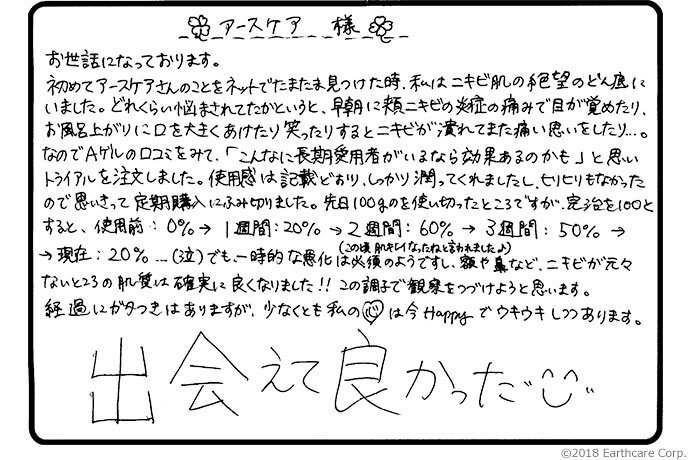 アースケア 様
お世話になっております。
初めてアースケアさんのことをネットでたまたま見つけた時、私はニキビ肌の絶望のどん底に
いました。どれくらい悩まされてたかというと、早朝に頬ニキビの炎症の痛みで目が覚めたり、
お風呂上がりに口を大きくあけたり笑ったりするとニキビが潰れてまた痛い思いをしたり…。
なのでAゲルの口コミをみて、「こんなに長期愛用者がいるなら効果あるのかも」と思い
トライアルを注文しました。使用感は記載どおり、しっかり潤ってくれましたし、ヒリヒリもなかった
ので思いきって定期購入にふみ切りました。先日100gのを使い切ったところですが、完治を100と
すると、使用前：0% → 1週間：20% → 2週間：60% → 3週間：50% →
(この頃肌キレイなったねと言われましたよ)
→ 現在：20% …(泣)でも、一時的な悪化は必須のようですし、額や鼻など、ニキビが元々
ないところの肌質は確実に良くなりました!! この調子で観察をつづけようと思います。
経過にガタつきはありますが、少なくとも私の心は今Happyでウキウキしつつあります。
出会えて良かった
©2018 Earthcare Corp.